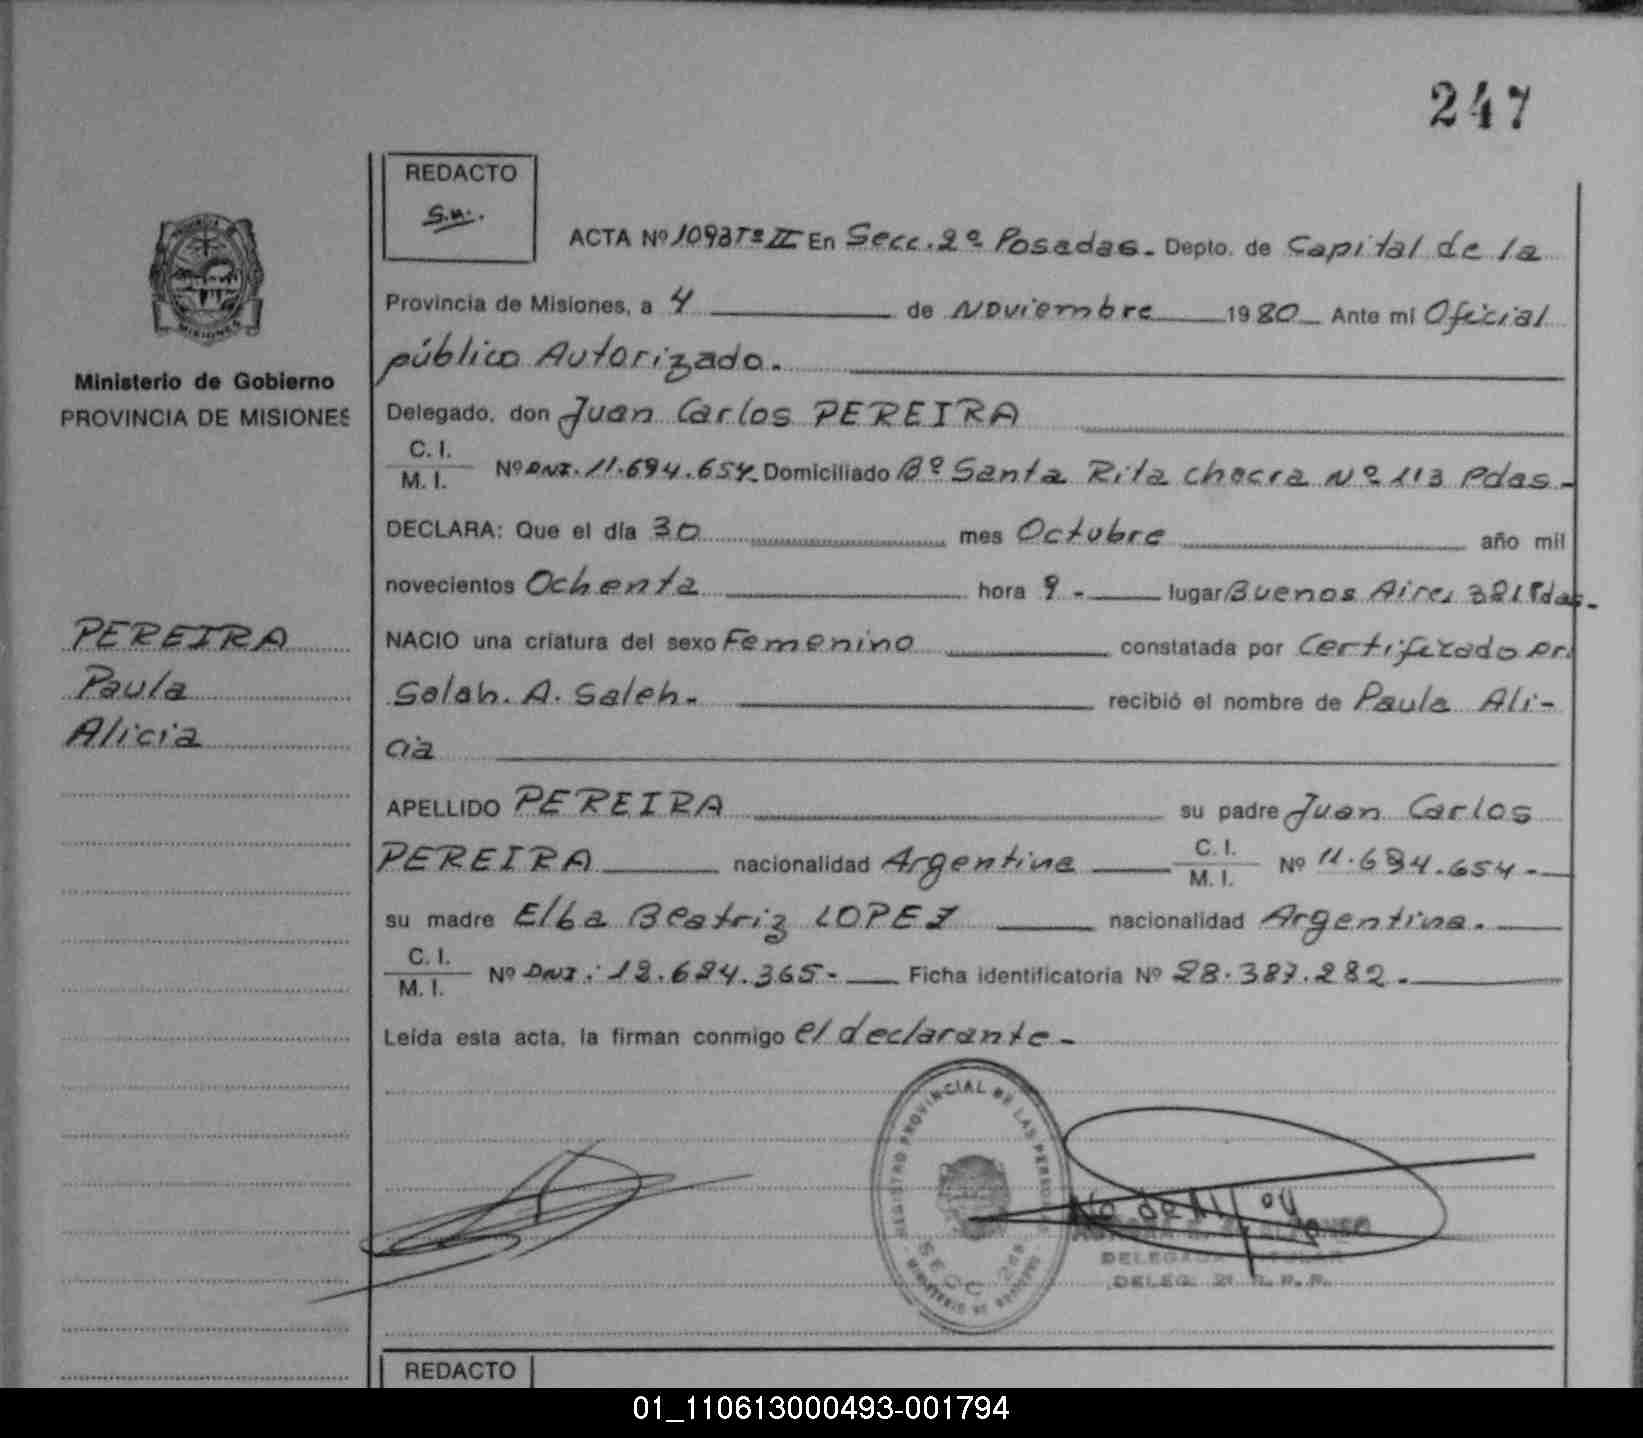 247
REDACTO
S.M.
ACTA Nº 1093 Tº II En Secc. 2ª Posadas. Depto. de Capital de la
Provincia de Misiones, a 4 de Noviembre 1980 Ante mi Oficial
público Autorizado.
Ministerio de Gobierno
PROVINCIA DE MISIONES
Delegado, don Juan Carlos PEREIRA
C. I.
M. I. Nº DNI. 11.694.654. Domiciliado Bº Santa Rita chacra Nº 113 Pdas.
DECLARA: Que el día 30 mes Octubre año mil
novecientos Ochenta hora 9 - lugar Buenos Aires Pdas.
PEREIRA
Paula
Alicia
NACIO una criatura del sexo Femenino constatada por Certificado Dr.
Salah. A. Saleh. recibió el nombre de Paula Ali-
cia
APELLIDO PEREIRA su padre Juan Carlos
PEREIRA nacionalidad Argentina C. I.
M. I. Nº 11.694.654.
su madre Elba Beatriz LOPEZ nacionalidad Argentina.
C. I.
M. I. Nº DNI: Ficha identificatoria Nº 28.387.282.
Leída esta acta, la firman conmigo el declarante.
REGISTRO PROVINCIAL DE LAS PERSONAS
SECC 2da
MINISTERIO DE GOBIERNO
DELEG. 2ª R. P. P.
REDACTO
01_110613000493-001794